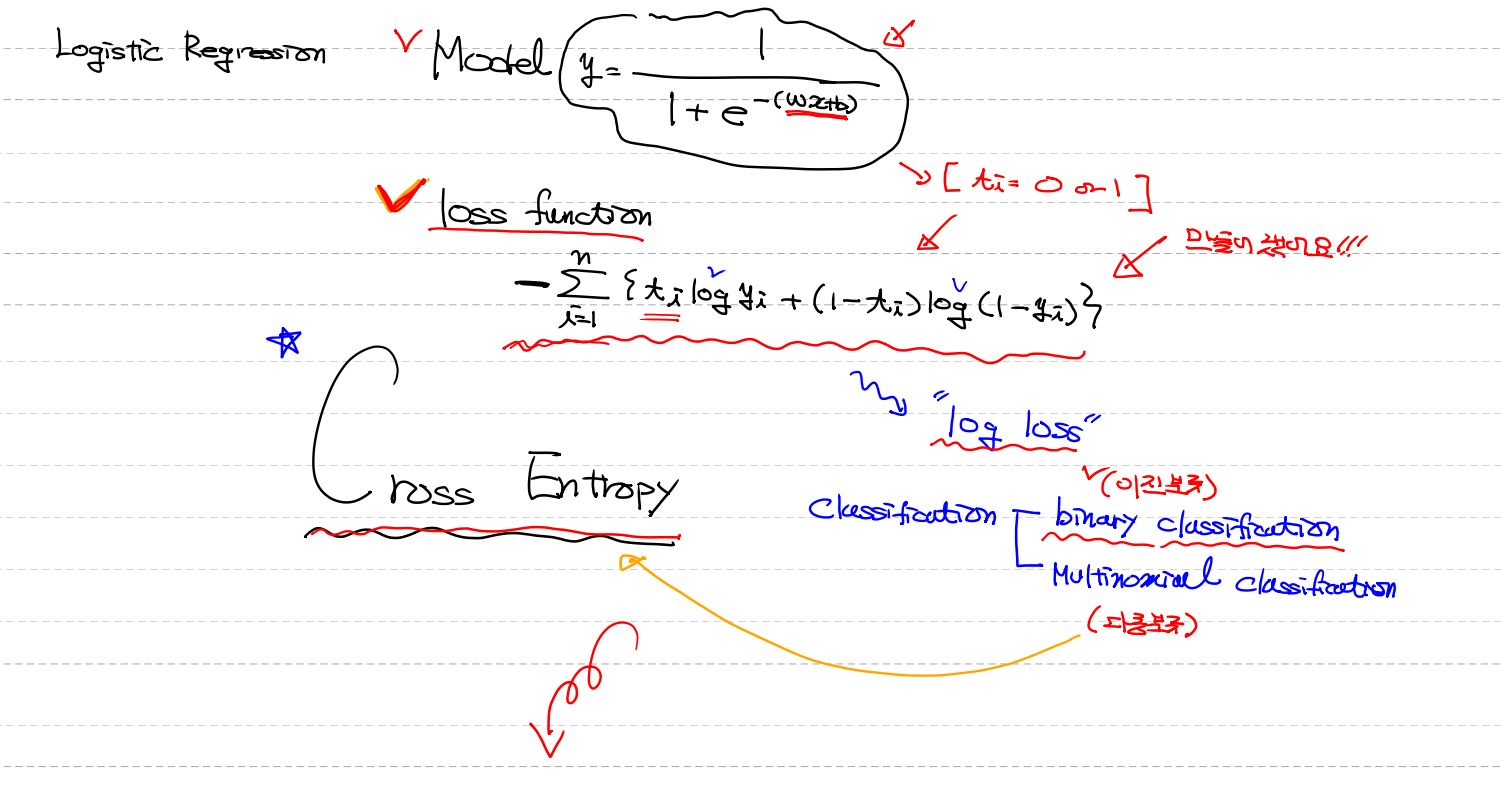 Logistic Regression
Model y = 1 / (1 + e^-(wx+b))
[ tᵢ = 0 or 1 ]
loss function
만들어 졌어요!!!
- Σ_{i=1}^{n} { tᵢ log yᵢ + (1 - tᵢ) log (1 - yᵢ) }
"log loss"
Cross Entropy
(이진분류)
Classification
binary classification
Multinomial classification
(다중분류)